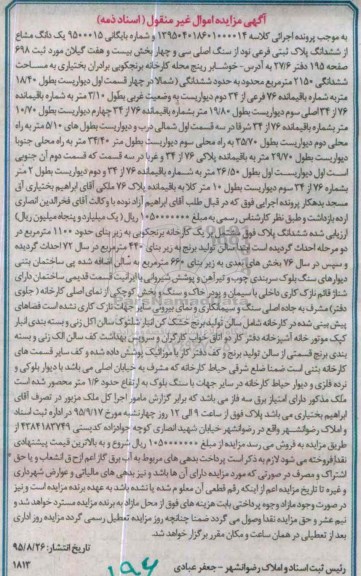 آگهی مزایده اموال غیر منقول (اسناد ذمه)
به موجب پرونده اجرائی کلاسه ۱۳۹۵۰۴۰۱۸۶۰۱۰۰۰۰۱۴ و شماره بایگانی ۹۵۰۰۰۱۵ یک دانگ مشاع
از ششدانگ پلاک ثبتی فرعی نود از سنگ اصلی سی و چهار بخش بیست و هفت گیلان مورد ثبت ۶۹۸
صفحه ۱۹۵ دفتر ۲۷/۶ به آدرس- خوشابر رینج محله کارخانه برنجکوبی برادران بختیاری به مساحت
ششدانگی ۲۱۵۰ مترمربع محدود به حدود ششدانگی (شمالا در چهار قسمت اول دیواریست بطول ۱۸/۴۰
متر به شماره باقیمانده ۷۶ فرعی از ۳۴ دوم دیواریست به وضعیت غربی بطول ۳/۱۰ متر به شماره باقیمانده
۷۶ از ۳۴ اصلی سوم دیواریست بطول ۱۹/۸۰ متر بشماره باقیمانده ۷۶ از ۳۴ چهارم دیواریست بطول ۱۰/۷۰
متر بشماره باقیمانده ۷۶ از ۳۴ شرقا در سه قسمت اول شمالی درب و دیواریست بطول های ۵/۱۰ متر به راه
محله دوم دیواریست بطول ۲۵/۷۰ به راه محله سوم دیواریست بطول متر ۳۴/۴۰ متر به راه محله جنوبا
دیواریست بطول ۲۹/۷۰ متر به باقیمانده پلاکی ۷۶ از ۳۴ و غربا در سه قسمت که قسمت دوم آن جنوبی
است اول دیواریست بطول ۲۶/۵۰ متر به شماره باقیمانده ۷۶ از ۳۴ دوم دیواریست بطول ۲ متر
بشماره ۷۶ از ۳۴ سوم دیواریست بطول ۱۰ متر کلا به باقیمانده پلاک ۷۶ ملکی آقای ابراهیم بختیاری آق
مسجد بدهکار پرونده اجرایی فوق که در قبال طلب آقای ابراهیم آزاد نوده با وکالت آقای فخرالدین انصاری
ارده بازداشت و طبق نظر کارشناس رسمی به مبلغ ۱۰۵۰۰۰۰۰۰۰ ریال (یک میلیارد و پنجاه میلیون ریال)
ارزیابی شده ششدانگ پلاک فوق شامل یک کارخانه برنجکوبی به زیر بنای حدود ۱۱۰۰ مترمربع در
دو مرحله احداث گردیده است ابتدا سالن تولید برنج به زیر بنای ۴۴۰ مترمربع در سال ۷۲ احداث گردیده
و سپس در سال ۷۶ بخش های بعدی به زیر بنای ۶۶۰ مترمربع به سالن اضافه شده پی ساختمان بتنی
دیوارهای سنگ بلوک سربندی چوب و تیرآهن و پوشش شیروانی با ایرانیت قسمت قدیمی ساختمان دارای
شناژ قائم نازک کاری داخلی با سیمان و پودر خاک و سنگ و بخش کوچکی از نمای اصلی کارخانه (جلوی
دفتر) مشرف به جاده اصلی سنگ و سیمانکاری و نمای بیرونی سایر جهات نازک کاری نشده است فضاهای
پیش بینی شده در کارخانه شامل سالن تولید برنج خشک کن انبار شلتوک سالن الک زنی و بسته بندی انبار
کپک موتور خانه آشپزخانه دفتر کار دو اتاق خواب کارگران و سرویس بهداشت کف سالن الک زنی و بسته
بندی برنج قسمتی از سالن تولید برنج و کف دفتر کار با موزائیک پوشش داده شده و کف سایر قسمت های
کارخانه بتنی است ضمنا ضلع شرقی حیاط کارخانه که مشرف به خیابان اصلی می باشد با دیوار بلوکی و
نرده فلزی و دیوار حیاط کارخانه در سایر جهات با سنگ بلوک به ارتفاع حدود ۱/۶ متر محصور شده است
ملک مذکور دارای امتیاز برق سه فاز می باشد که برابر گزارش مامور اجرا کل ملک مزبور در تصرف آقای
ابراهیم بختیاری می باشد پلاک فوق از ساعت ۹ الی ۱۲ روز چهارشنبه مورخ ۹۵/۹/۱۷ در اداره ثبت اسناد
و املاک رضوانشهر واقع در رضوانشهر خیابان شهید انصاری کوچه جوادزاده کدپستی ۴۳۸۴۱۸۳۷۴۹ از
طریق مزایده به فروش می رسد مزایده از مبلغ ۱۰۵۰۰۰۰۰۰۰ ریال شروع و به بالاترین قیمت پیشنهادی
نقدا فروخته می شود لازم به ذکر است پرداخت بدهی های مربوط به آب برق گاز اعم از حق انشعاب و یا حق
اشتراک و مصرف در صورتی که مورد مزایده دارای آن ها باشد و نیز بدهی های مالیاتی و عوارض شهرداری
و غیره تا تاریخ مزایده اعم از اینکه رقم قطعی آن معلوم شده یا نشده باشد به عهده برنده مزایده است و نیز
در صورت وجود مازاد وجوه پرداختی بابت هزینه های فوق از محل مازاد به برنده مزایده مسترد خواهد شد و
نیم عشر و حق مزایده نقدا وصول می گردد ضمنا چنانچه روز مزایده تعطیل رسمی گردد مزایده روز اداری
بعد از تعطیلی در همان ساعت و مکان مقرر برگزار خواهد شد.
تاریخ انتشار: ۹۵/۸/۲۶
رئیس ثبت اسناد و املاک رضوانشهر - جعفر عبادی
۱۸۱۳
۱۹۶